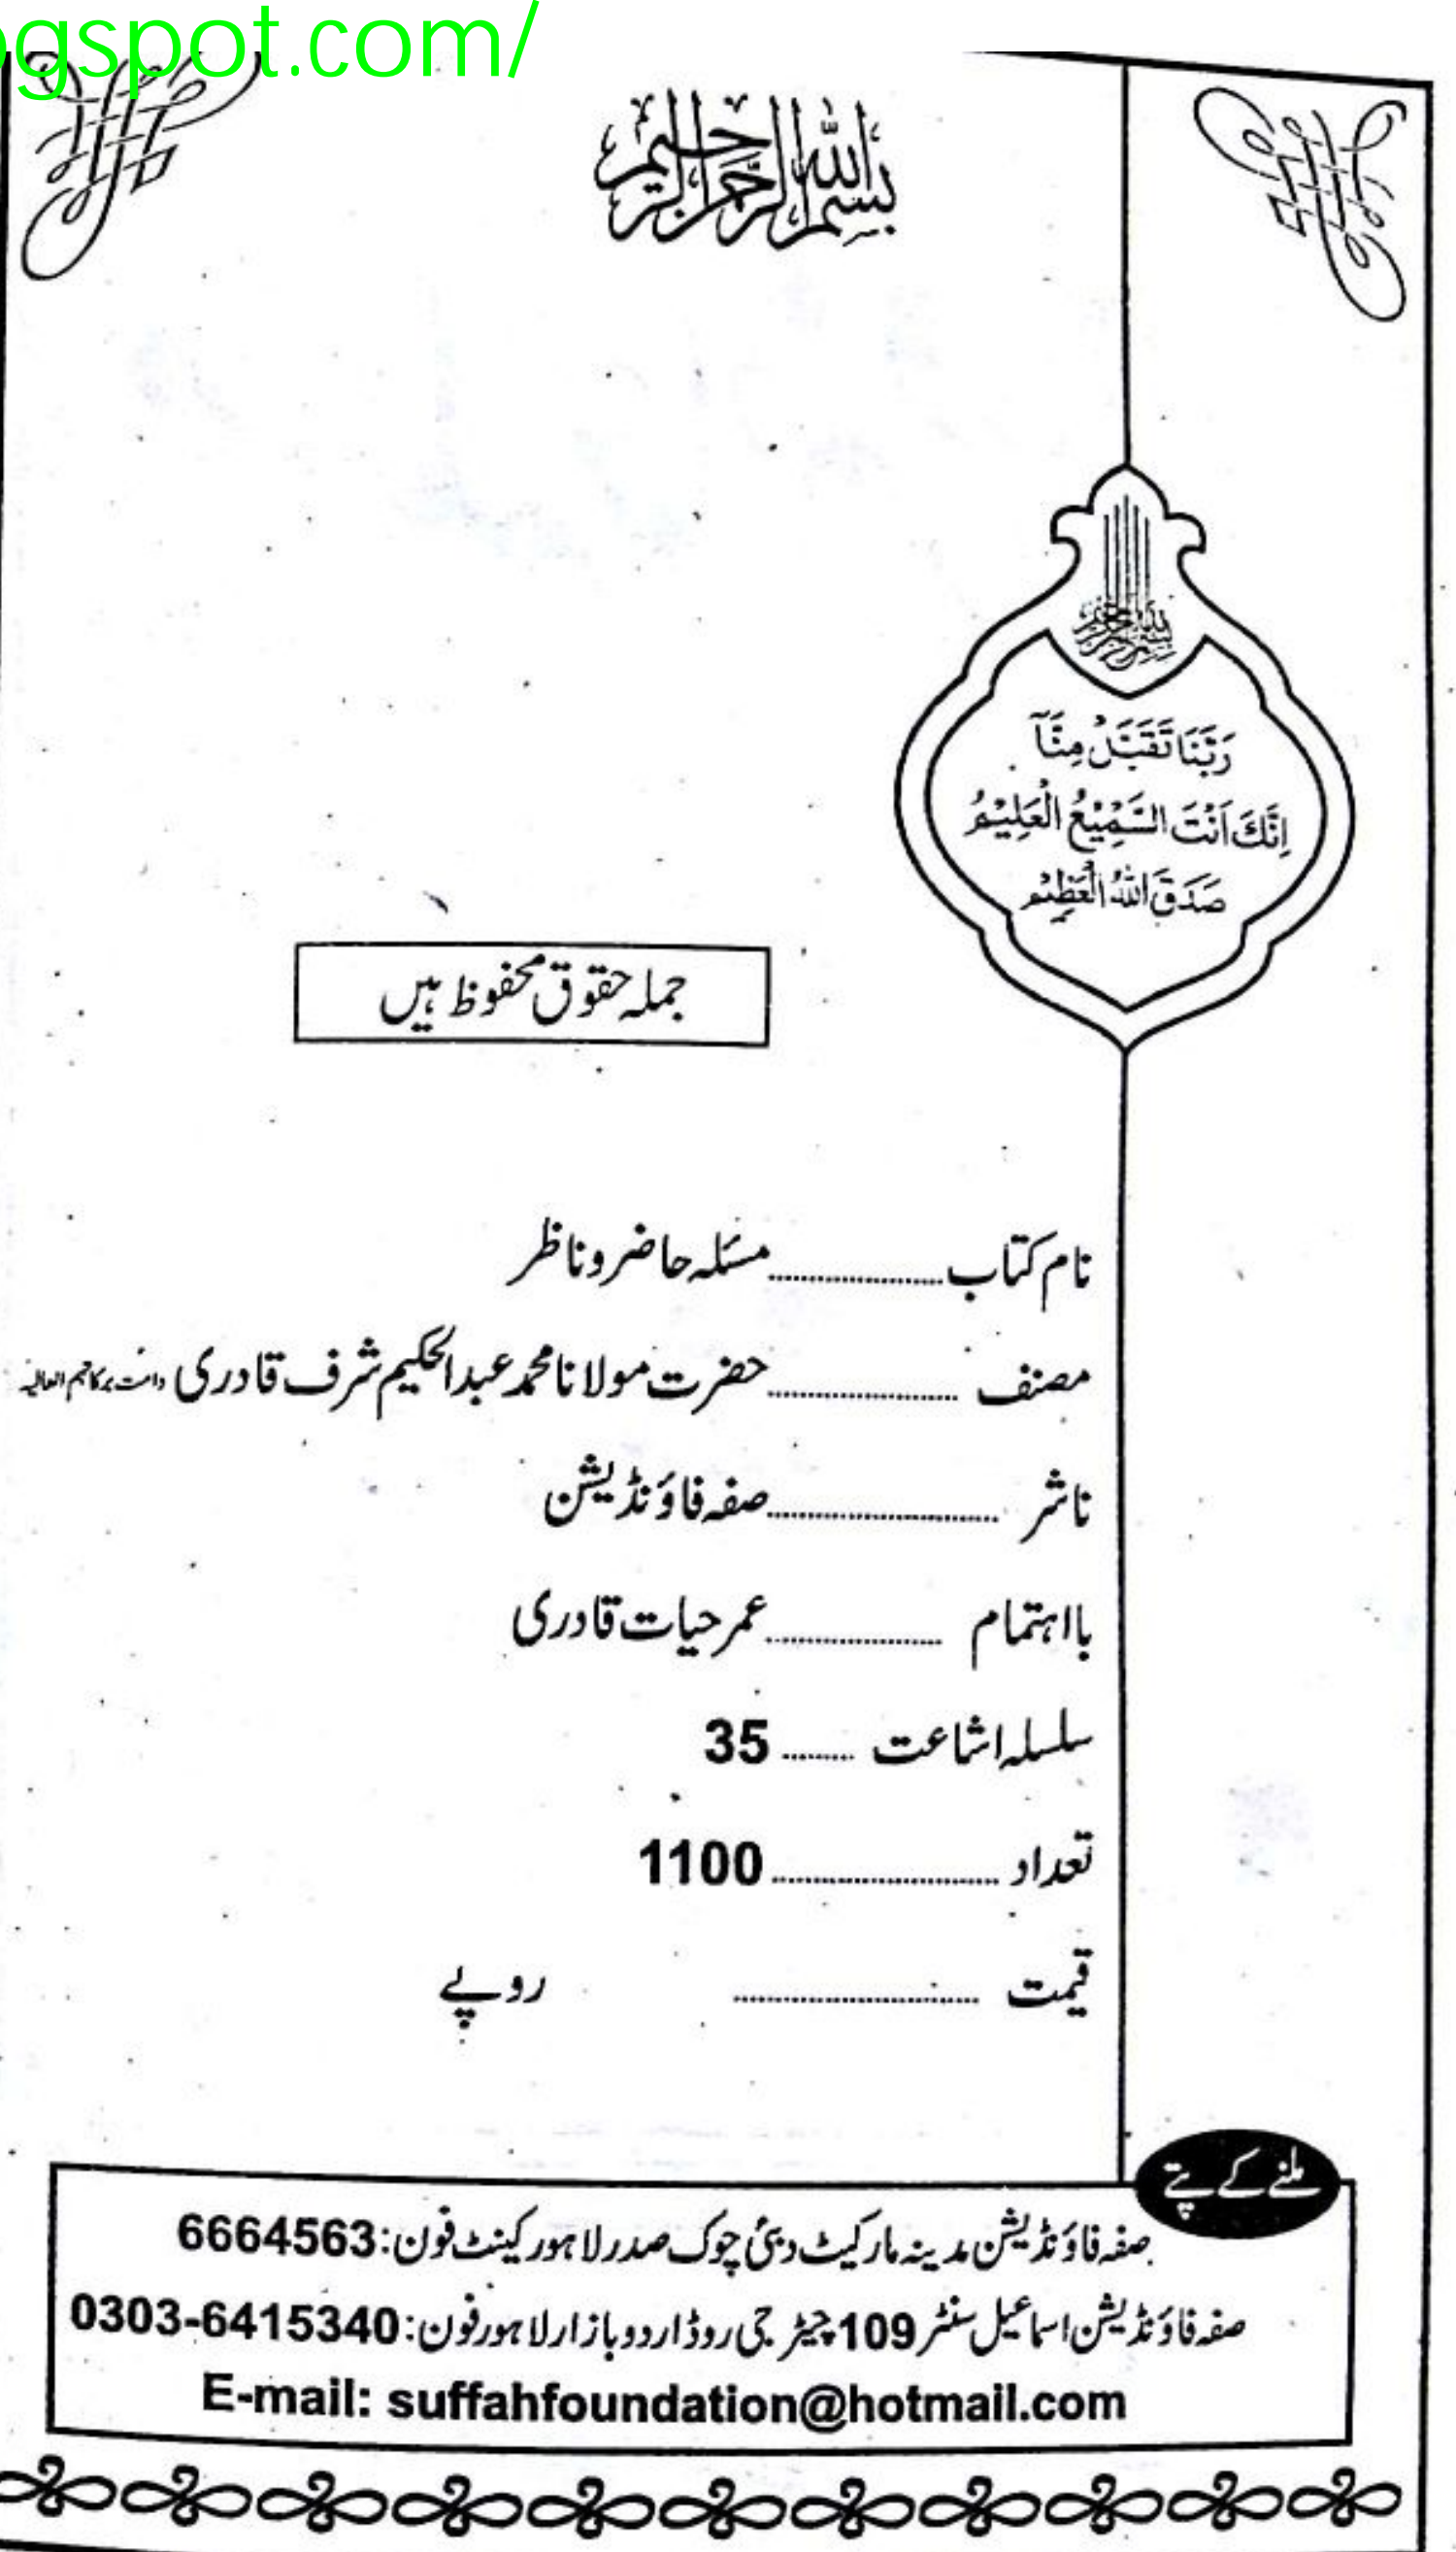 ogspot.com/
بسم الله الرحمن الرحيم
بسم الله الرحمن الرحيم
رَبَّنَا تَقَبَّلْ مِنَّآ
اِنَّكَ اَنْتَ السَّمِيْعُ الْعَلِيْمُ
صَدَقَ اللهُ الْعَظِيْم
جملہ حقوق محفوظ ہیں
نام کتاب ........ مسئلہ حاضر و ناظر
مصنف ........ حضرت مولانا محمد عبدالحکیم شرف قادری دامت برکاتہم العالیہ
ناشر ........ صفہ فاؤنڈیشن
بااہتمام ........ عمر حیات قادری
سلسلہ اشاعت ........ 35
تعداد ........ 1100
قیمت ........ روپے
ملنے کے پتے
صفہ فاؤنڈیشن مدینہ مارکیٹ دبئی چوک صدر لاہور کینٹ فون: 6664563
صفہ فاؤنڈیشن اسماعیل سنٹر 109 چیٹر جی روڈ اردو بازار لاہور فون: 0303-6415340
E-mail: suffahfoundation@hotmail.com